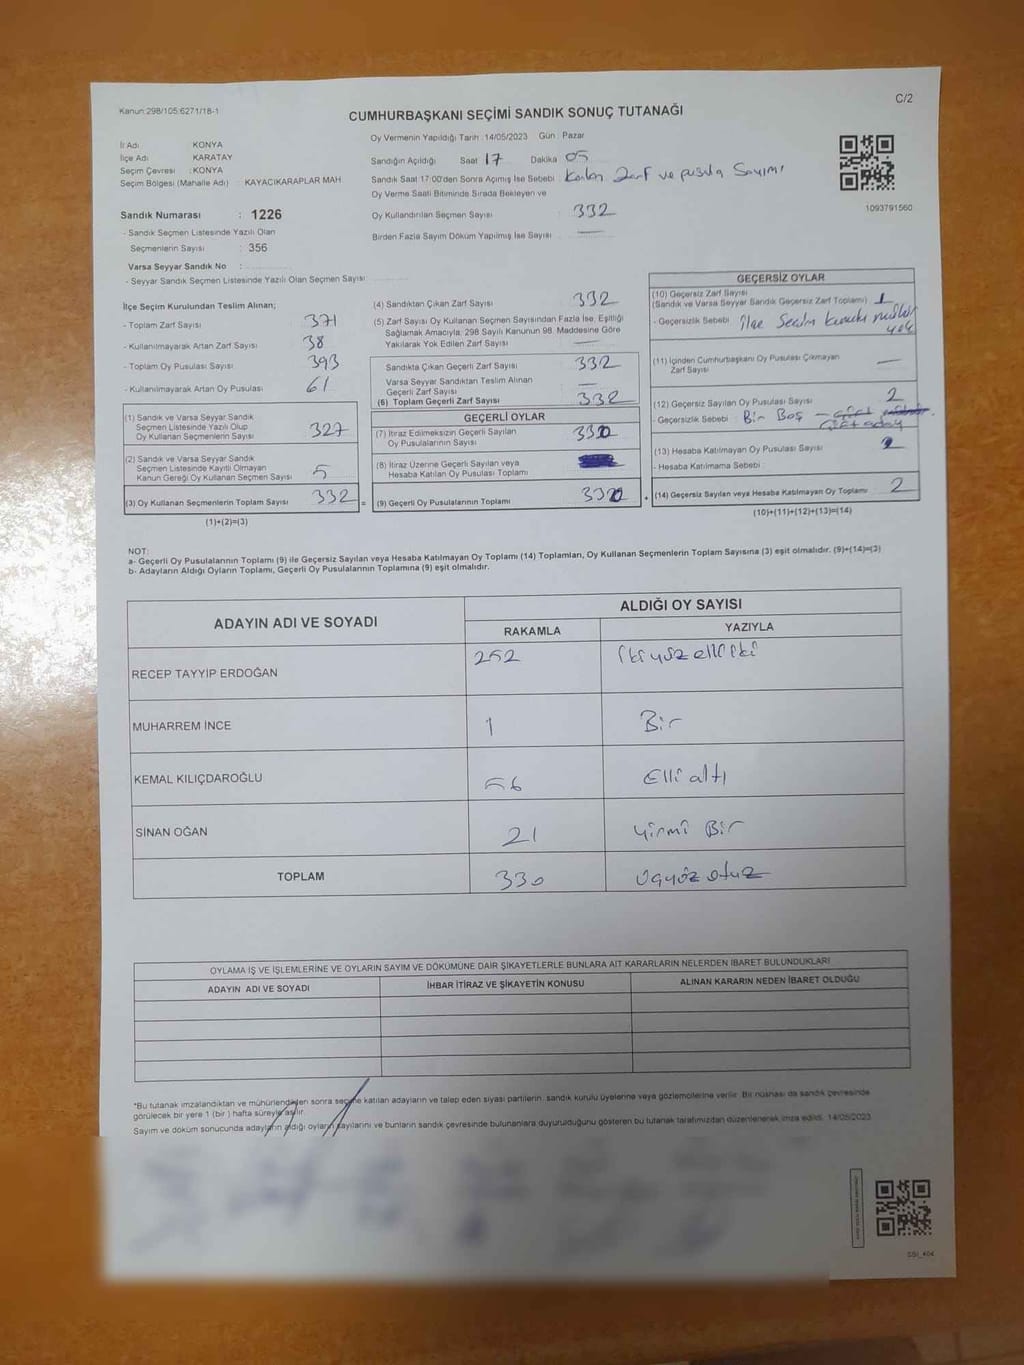 Kanun:298/105;6271/18-1
C/2
CUMHURBAŞKANI SEÇİMİ SANDIK SONUÇ TUTANAĞI
İl Adı KONYA
İlçe Adı KARATAY
Seçim Çevresi : KONYA
Seçim Bölgesi (Mahalle Adı) : KAYACIKARAPLAR MAH
Sandık Numarası : 1226
- Sandık Seçmen Listesinde Yazılı Olan
Seçmenlerin Sayısı : 356
Varsa Seyyar Sandık No :
- Seyyar Sandık Seçmen Listesinde Yazılı Olan Seçmen Sayısı:
Oy Vermenin Yapıldığı Tarih :14/05/2023 Gün : Pazar
Sandığın Açıldığı Saat 17 Dakika 05
Sandık Saat 17:00'den Sonra Açımış İse Sebebi : Kalan Zarf ve pusula Sayımı
Oy Verme Saati Bitiminde Sırada Bekleyen ve
Oy Kullandırılan Seçmen Sayısı 332
Birden Fazla Sayım Döküm Yapılmış İse Sayısı : —
1093791560
İlçe Seçim Kurulundan Teslim Alınan;
- Toplam Zarf Sayısı 371
- Kullanılmayarak Artan Zarf Sayısı 38
- Toplam Oy Pusulası Sayısı 393
- Kullanılmayarak Artan Oy Pusulası 61
(1) Sandık ve Varsa Seyyar Sandık
Seçmen Listesinde Yazılı Olup
Oy Kullanan Seçmenlerin Sayısı 327
(2) Sandık ve Varsa Seyyar Sandık
Seçmen Listesinde Kayıtlı Olmayan
Kanun Gereği Oy Kullanan Seçmen Sayısı 5
(3) Oy Kullanan Seçmenlerin Toplam Sayısı 332 =
(1)+(2)=(3)
(4) Sandıktan Çıkan Zarf Sayısı 332
(5) Zarf Sayısı Oy Kullanan Seçmen Sayısından Fazla İse, Eşitliği
Sağlamak Amacıyla, 298 Sayılı Kanunun 98. Maddesine Göre
Yakılarak Yok Edilen Zarf Sayısı —
Sandıkta Çıkan Geçerli Zarf Sayısı 332
Varsa Seyyar Sandıktan Teslim Alınan
Geçerli Zarf Sayısı —
(6) Toplam Geçerli Zarf Sayısı 332
GEÇERLİ OYLAR
(7) İtiraz Edilmeksizin Geçerli Sayılan
Oy Pusulalarının Sayısı 330
(8) İtiraz Üzerine Geçerli Sayılan veya
Hesaba Katılan Oy Pusulası Toplamı
(9) Geçerli Oy Pusulalarının Toplamı 330
GEÇERSİZ OYLAR
(10) Geçersiz Zarf Sayısı
(Sandık ve Varsa Seyyar Sandık Geçersiz Zarf Toplamı) 1
- Geçersizlik Sebebi : İlçe Seçim kurulu mührü
yok
(11) İçinden Cumhurbaşkanı Oy Pusulası Çıkmayan
Zarf Sayısı —
(12) Geçersiz Sayılan Oy Pusulası Sayısı 2
- Geçersizlik Sebebi : Bir Boş —
(13) Hesaba Katılmayan Oy Pusulası Sayısı
- Hesaba Katılmama Sebebi :
(14) Geçersiz Sayılan veya Hesaba Katılmayan Oy Toplamı 2
(10)+(11)+(12)+(13)=(14)
NOT:
a- Geçerli Oy Pusulalarının Toplamı (9) ile Geçersiz Sayılan veya Hesaba Katılmayan Oy Toplamı (14) Toplamları, Oy Kullanan Seçmenlerin Toplam Sayısına (3) eşit olmalıdır. (9)+(14)=(3)
b- Adayların Aldığı Oyların Toplamı, Geçerli Oy Pusulalarının Toplamına (9) eşit olmalıdır.
ADAYIN ADI VE SOYADI ALDIĞI OY SAYISI
RAKAMLA YAZIYLA
RECEP TAYYİP ERDOĞAN 252 İkiyüz elli iki
MUHARREM İNCE 1 Bir
KEMAL KILIÇDAROĞLU 56 Elli altı
SİNAN OĞAN 21 Yirmi Bir
TOPLAM 330 Üçyüz otuz
OYLAMA İŞ VE İŞLEMLERİNE VE OYLARIN SAYIM VE DÖKÜMÜNE DAİR ŞİKAYETLERLE BUNLARA AİT KARARLARIN NELERDEN İBARET BULUNDUKLARI
ADAYIN ADI VE SOYADI İHBAR İTİRAZ VE ŞİKAYETİN KONUSU ALINAN KARARIN NEDEN İBARET OLDUĞU
*Bu tutanak imzalandıktan ve mühürlendikten sonra seçime katılan adayların ve talep eden siyasi partilerin, sandık kurulu üyelerine veya gözlemcilerine verilir. Bir nüshası da sandık çevresinde
görülecek bir yere 1 (bir ) hafta süreyle asılır.
Sayım ve döküm sonucunda adayların aldığı oyların sayılarını ve bunların sandık çevresinde bulunanlara duyurulduğunu gösteren bu tutanak tarafımızdan düzenlenerek imza edildi. 14/05/2023
SSI_404